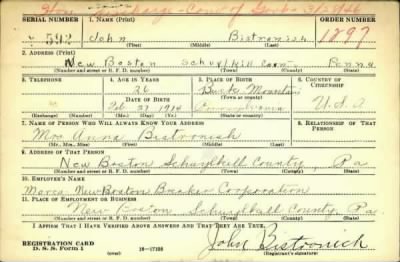 Hon. Discharge - Conv of Govt - 3/2/46
SERIAL NUMBER 1. NAME (Print) ORDER NUMBER
592 John Bistronish 1897
(First) (Middle) (Last)
2. ADDRESS (Print)
New Boston Schuylkill Coun. Penna
(Number and street or R. F. D. number) (Town) (County) (State)
3. TELEPHONE 4. AGE IN YEARS 5. PLACE OF BIRTH 6. COUNTRY OF CITIZENSHIP
26 Buck Mountain
DATE OF BIRTH (Town or county)
Feb 27 1914 Pennsylvania U.S.A.
(Exchange) (Number) (Mo.) (Day) (Yr.) (State or country)
7. NAME OF PERSON WHO WILL ALWAYS KNOW YOUR ADDRESS 8. RELATIONSHIP OF THAT PERSON
Mrs Anna Bistronish
(Mr., Mrs., Miss) (First) (Middle) (Last)
9. ADDRESS OF THAT PERSON
New Boston Schuylkill County, Pa
(Number and street or R. F. D. number) (Town) (County) (State)
10. EMPLOYER'S NAME
New Boston Breaker Corporation
11. PLACE OF EMPLOYMENT OR BUSINESS
New Boston Schuylkill County Pa.
(Number and street or R. F. D. number) (Town) (County) (State)
I AFFIRM THAT I HAVE VERIFIED ABOVE ANSWERS AND THAT THEY ARE TRUE.
REGISTRATION CARD
D. S. S. Form 1 (over) 16-17105 John Bistronich
(Registrant's signature)